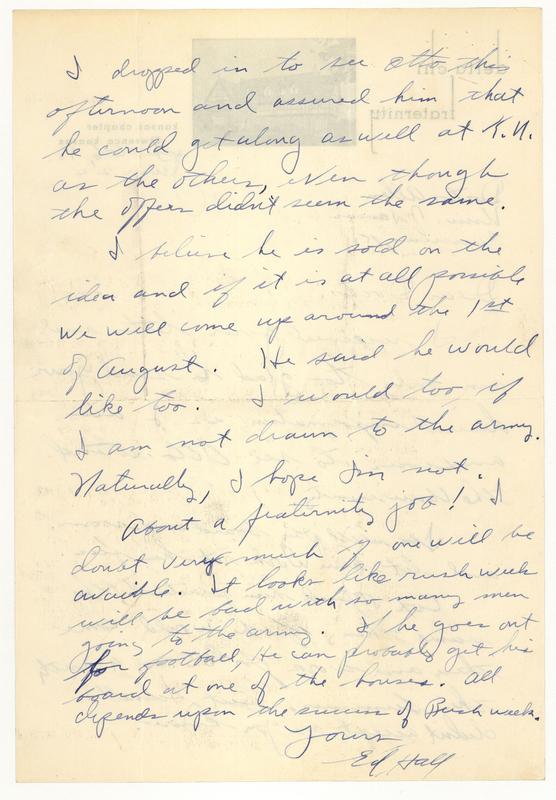 I dropped in to see Otto this
afternoon and assured him that
he could get along as well at K.U.
as the others, even though
the offers didn't seem the same.
I believe he is sold on the
idea and if it is at all possible
we will come up around the 1st
of August. He said he would
like too. I would too if
I am not drawn to the army.
Naturally, I hope I'm not.
About a fraternity job! I
doubt very much if one will be
avaible. It looks like rush week
will be bad with so many men
going to the army. If he goes out
for football, he can probably get his
board at one of the houses. All
depends upon the success of Rush week.
Yours
Ed Hall